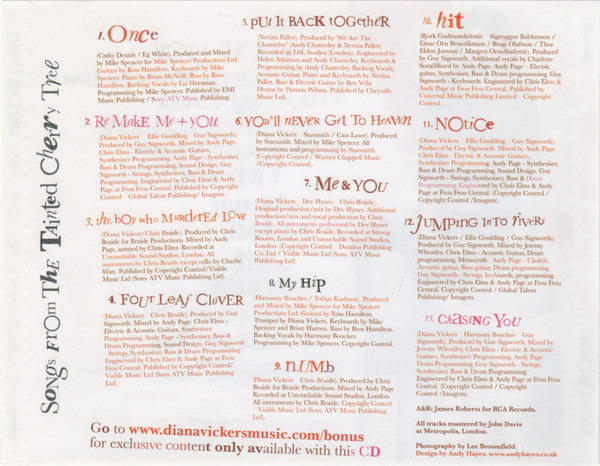 Songs From The Tainted Cherry Tree
1. Once
(Cathy Dennis / Eg White). Produced and Mixed
by Mike Spencer for Mike Spencer Productions Ltd.
Guitars by Ross Hamilton. Keyboards by Mike
Spencer. Piano by Brian McNeill. Bass by Ross
Hamilton. Backing Vocals by Jane Horsman.
Programming by Mike Spencer. Published by EMI
Music Publishing / Sony ATV Music Publishing.
2. Remake Me + You
(Diana Vickers Ellie Goulding Guy Sigsworth).
Produced by Guy Sigsworth. Mixed by Andy Page.
Chris Elms - Electric & Acoustic Guitars,
Synthesizer Programming. Andy Page - Synthesizer,
Bass & Drum Programming, Sound Design. Guy
Sigsworth - Strings, Synthesizer, Bass & Drum
Programming. Engineered by Chris Elms & Andy
Page at Frou Frou Central. Published by Copyright
Control Global Talent Publishing/ Imagem.
3. the boy who Murdered Love
(Diana Vickers/Chris Braide). Produced by Chris
Braide for Braide Productions. Mixed by Andy
Page, assisted by Chris Elms. Recorded at
Untouchable Sound Studios, London. All
instruments by Chris Braide except cello by Charlie
Watt. Published by Copyright Control/Visible
Music Ltd (Sony ATV Music Publishing Ltd).
4. Four Leaf Clover
(Diana Vickers Chris Braide). Produced by Guy
Sigsworth. Mixed by Andy Page. Chris Elms -
Electric & Acoustic Guitars, Synthesizer
Programming. Andy Page - Synthesizer, Bass &
Drum Programming, Sound Design. Guy Sigsworth
- Strings, Synthesizer, Bass & Drum Programming.
Engineered by Chris Elms & Andy Page at Frou Frou
Central. Published by Copyright Control/ Visible
Music Ltd (Sony ATV Music Publishing
Ltd).
5. put it back together
(Nerina Pallot). Produced by 'We Are The
Chatterley' (Andy Chatterley & Nerina Pallot)
@ RELNO S.L. Studios (London). Engineered by
Helen Atkinson and Andy Chatterley. Keyboards &
Programming by Andy Chatterley. Backing Vocals,
Acoustic Guitar, Piano and Keyboards by Nerina
Pallot. Bass & Electric Guitar by Ben Vella
Drums by Damon Wilson. Published by Chrysalis
Music Ltd.
6. You'll never Get To Heaven
(Diana Vickers Starsmith / Cass Lowe). Produced
by Starsmith. Mixed by Mike Spencer. All
instruments and programming by Starsmith.
(Copyright Control / Warner Chappell Music
/Copyright Control).
7. Me & You
(Diana Vickers Dev Hynes Chris Braide).
Original production/mix by Dev Hynes. Additional
production/mix and vocal production by Chris
Braide. All instruments performed by Dev Hynes
except piano by Chris Braide. Recorded at Strong
Rooms, London and Untouchable Sound Studios,
London. (Copyright Control Domino Publishing
Co. Ltd / Visible Music Ltd (Sony ATV Publishing
Ltd).
8. My Hip
(Harmony Boucher / Tobias Karlsson). Produced
and Mixed by Mike Spencer for Mike Spencer
Productions Ltd. Guitars by Ross Hamilton.
Trumpet by Diana Vickers. Keyboards by Mike
Spencer and Brian Harris. Bass by Ross Hamilton.
Backing Vocals by Harmony Boucher.
Programming by Mike Spencer. Copyright Control.
9. numb
(Diana Vickers Chris Braide). Produced by Chris
Braide for Braide Productions. Mixed by Andy Page
Recorded at Untouchable Sound Studios, London.
All instruments by Chris Braide. Copyright Control
Visible Music Ltd (Sony ATV Music Publishing
Ltd).
10. hit
(Bjork Gudmundsdottir Sigtryggur Baldursson /
Einar Orn Benediktsson / Bragi Olafsson / Thor
Eldon Jonsson / Margret Ornolfsdottir). Produced
by Guy Sigsworth. Additional vocal by Charlene
Soraia. Mixed by Andy Page. Andy Page - Electric
guitar, Synthesizer, Bass & Drum programming. Guy
Sigsworth - Keyboards. Engineered by Chris Elms &
Andy Page at Frou Frou Central. Published by
Universal Music Publishing Limited Copyright
Control.
11. Notice
(Diana Vickers Ellie Goulding Guy Sigsworth).
Produced by Guy Sigsworth. Mixed by Andy Page.
Chris Elms - Electric & Acoustic Guitars,
Synthesizer Programming. Andy Page -
Synthesizer, Bass & Drum
Programming, Sound Design. Guy
Sigsworth - Strings, Synthesizer, Bass & Drum
Programming. Engineered by Chris Elms & Andy
Page at Frou Frou Central. (Copyright Control /
Global Talent Publishing / Imagem).
12. Jumping Into rivers
(Diana Vickers / Ellie Goulding / Guy Sigsworth).
Produced by Guy Sigsworth. Mixed by Jeremy
Wheatley. Chris Elms - Acoustic guitar, Drum
programming, Andy Page - Ukulele,
Acoustic guitar, bass guitar, Drum programming
Guy Sigsworth - Strings, keyboards, programming
Engineered by Chris Elms & Andy Page at Frou Frou
Central. (Copyright Control / Global Talent
Publishing / Imagem).
13. Chasing You
(Diana Vickers Harmony Boucher Guy
Sigsworth). Produced by Guy Sigsworth. Mixed by
Jeremy Wheatley. Chris Elms - Electric & Acoustic
Guitars, Synthesizer Programming. Andy Page
Synthesizer, Bass & Drum Programming,
Sound Design. Guy Sigsworth - Strings,
Synthesizer, Bass & Drum Programming
Engineered by Chris Elms & Andy Page at Frou Frou
Central. (Copyright Control / Imagem).
A&R: James Roberts for RCA Records.
All tracks mastered by John Davis
at Metropolis, London.
Photography by Lee Broomfield.
Design by Andy Hayes. www.andyhayes.co.uk
Go to www.dianavickersmusic.com/bonus
for exclusive content only available with this CD